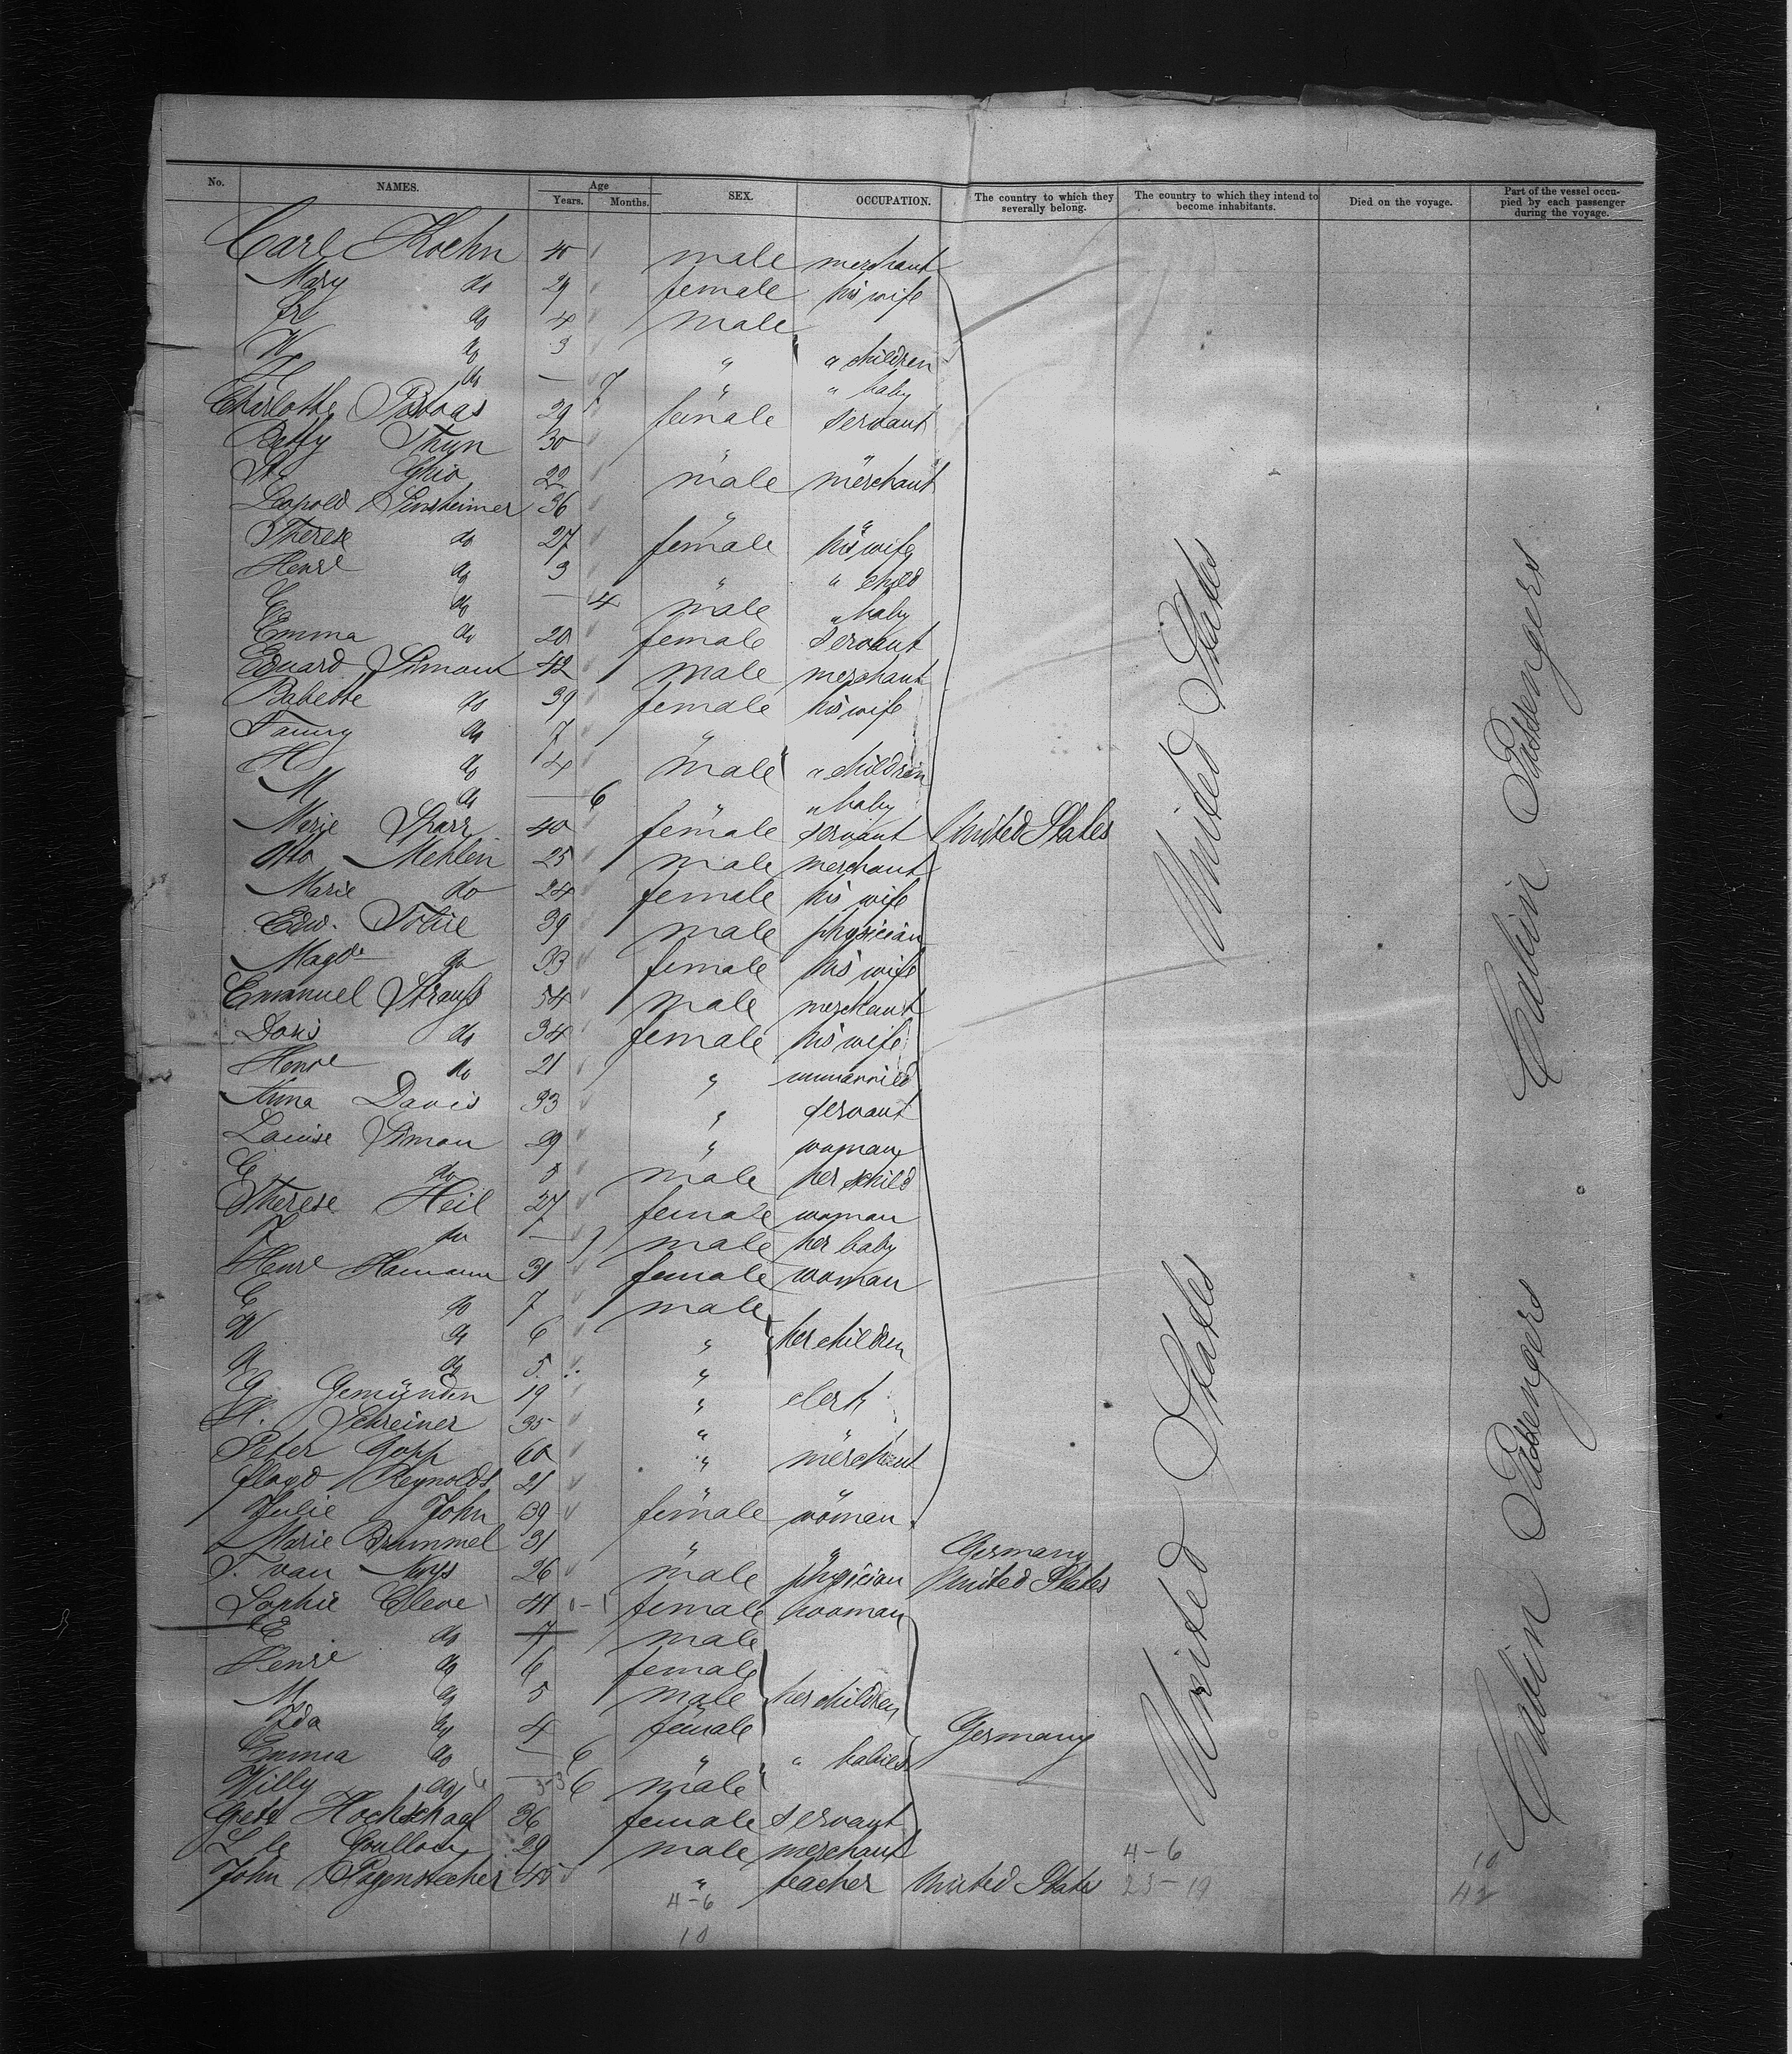 No. NAMES. Age Years. Months. SEX. OCCUPATION. The country to which they severally belong. The country to which they intend to become inhabitants. Died on the voyage. Part of the vessel occupied by each passenger during the voyage.
Carl Koehn 40 male merchant
Mary do 29 female his wife
do 4 male
W do 3 " " children
do — 7 " " baby
Charlotte 29 female servant
Betty Thyn 30 " "
St. Ghio 22 male merchant
Leopold Sensheimer 36 " "
Therese do 27 female his wife
Henre do 3 " " child
E do — 4 male " baby
Emma do 20 female servant
Eduard Simont 42 male merchant
Babette do 39 female his wife
Fanny do 7 "
H do 4 male " children
M do — 6 " " baby
Marie Sharr 40 female servant United States
Otto Mehlen 25 male merchant
Marie do 24 female his wife
Edw. Tobie 39 male physician
Magde do 33 female his wife
Emanuel Strauß 54 male merchant
Doris do 34 female his wife
Henre do 21 " unmarried
Anna Davis 33 " servant
Louise Simon 29 " woman
E do 5 male her child
Therese Heil 27 female woman
do — male her baby
Henre Hamann 31 female woman
E do 7 male
W do 6 " her children
do 5 "
G. Gemünden 19 " clerk
H. Schreiner 35 " "
Peter Gopp 60 " merchant
Floyd Reynolds 21 " "
Julie John 39 female woman
Marie Brummel 31 " " Germany
T. van Nuys 26 male physician United States
Sophie Cleve 41 female woman
E do 7 male
Henre do 6 female
M do 5 male her children
Ida do 4 female
Emma do — 6 " " babies Germany
Willy do — 6 male
Grete Hochschael 36 female servant
L de 29 male merchant 4-6 10
John Pagenstecher 40 " teacher United States 23-19 42
4-6
10
United States
United States
Cabin Passengers
Cabin Passengers